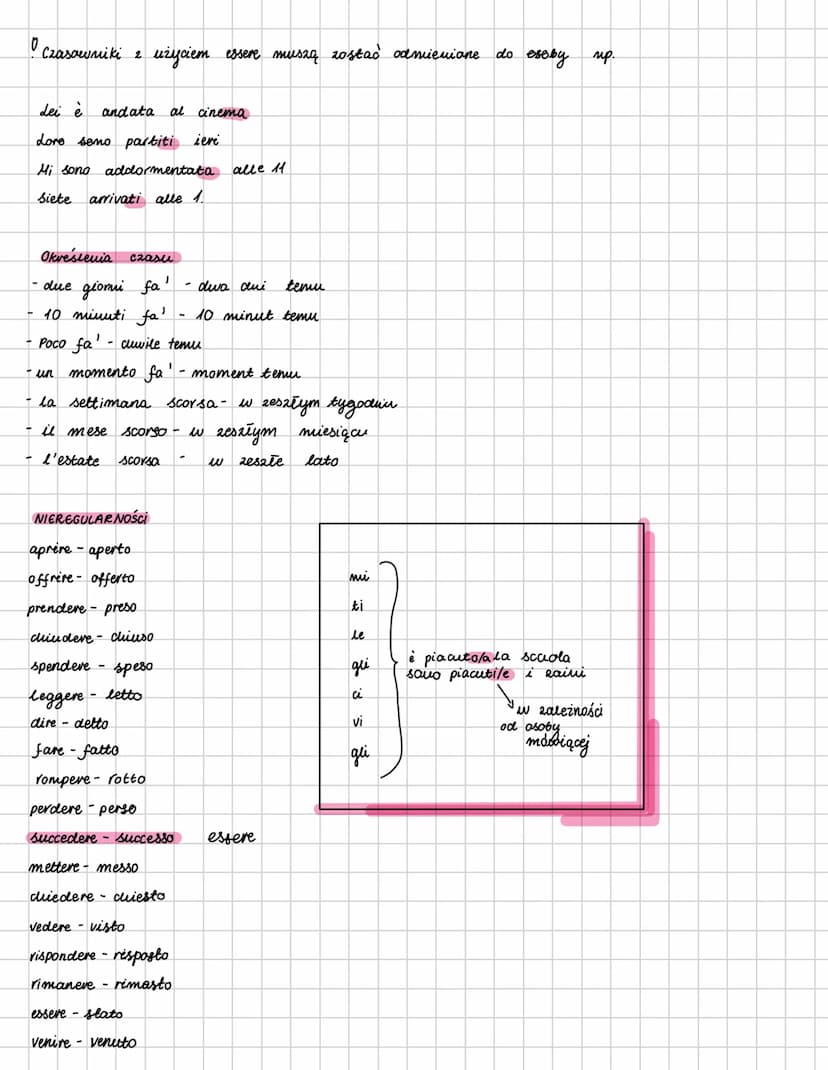 ! Czasowniki z użyciem essere muszą zostać odmieniane do osoby np.
Lei è andata al cinema
Loro sono partiti ieri
Mi sono addormentata alle 11
Siete arrivati alle 1.
Określenia czasu
- due giorni fa' - dwa dni temu
- 10 minuti fa' - 10 minut temu
- Poco fa' - chwile temu
- un momento fa' - moment temu
- la settimana scorsa - w zeszłym tygodniu
- il mese scorso - w zeszłym miesiącu
- l'estate scorsa - w zeszłe lato
NIEREGULARNOŚCI
aprire - aperto
offrire - offerto
prendere - preso
chiudere - chiuso
spendere - speso
leggere - letto
dire - detto
fare - fatto
rompere - rotto
perdere - perso
succedere - successo essere
mettere - messo
chiedere - chiesto
vedere - visto
rispondere - risposto
rimanere - rimasto
essere - stato
venire - venuto
mi
ti
le
gli
ci
vi
gli
è piaciuto/a la scuola
sono piaciuti/e i
w zależności
od osoby
mówiącej